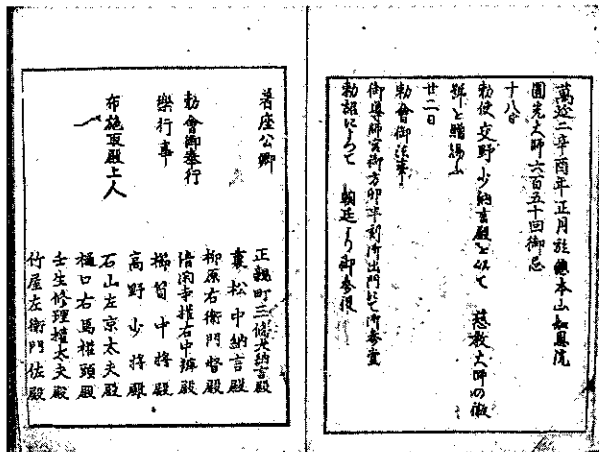 萬延二辛酉年正月於惣本山知恩院
圓光大師六百五十回御忌
十八日
勅使交野少納言殿を以て 慈教大師の徽
號を贈賜ふ
廿二日
勅會御法事
御導師宮御方卯半刻御出門にて御参堂
勅詔によつて 朝廷より御参役
著座公卿
正親町三條大納言殿
裏松中納言殿
柳原右衛門督殿
勅會御奉行
樂行事
櫛笥中将殿
高野少将殿
布施取殿上人
石山左京太夫殿
樋口右馬權頭殿
壬生修理權太夫殿
竹屋左衛門佐殿